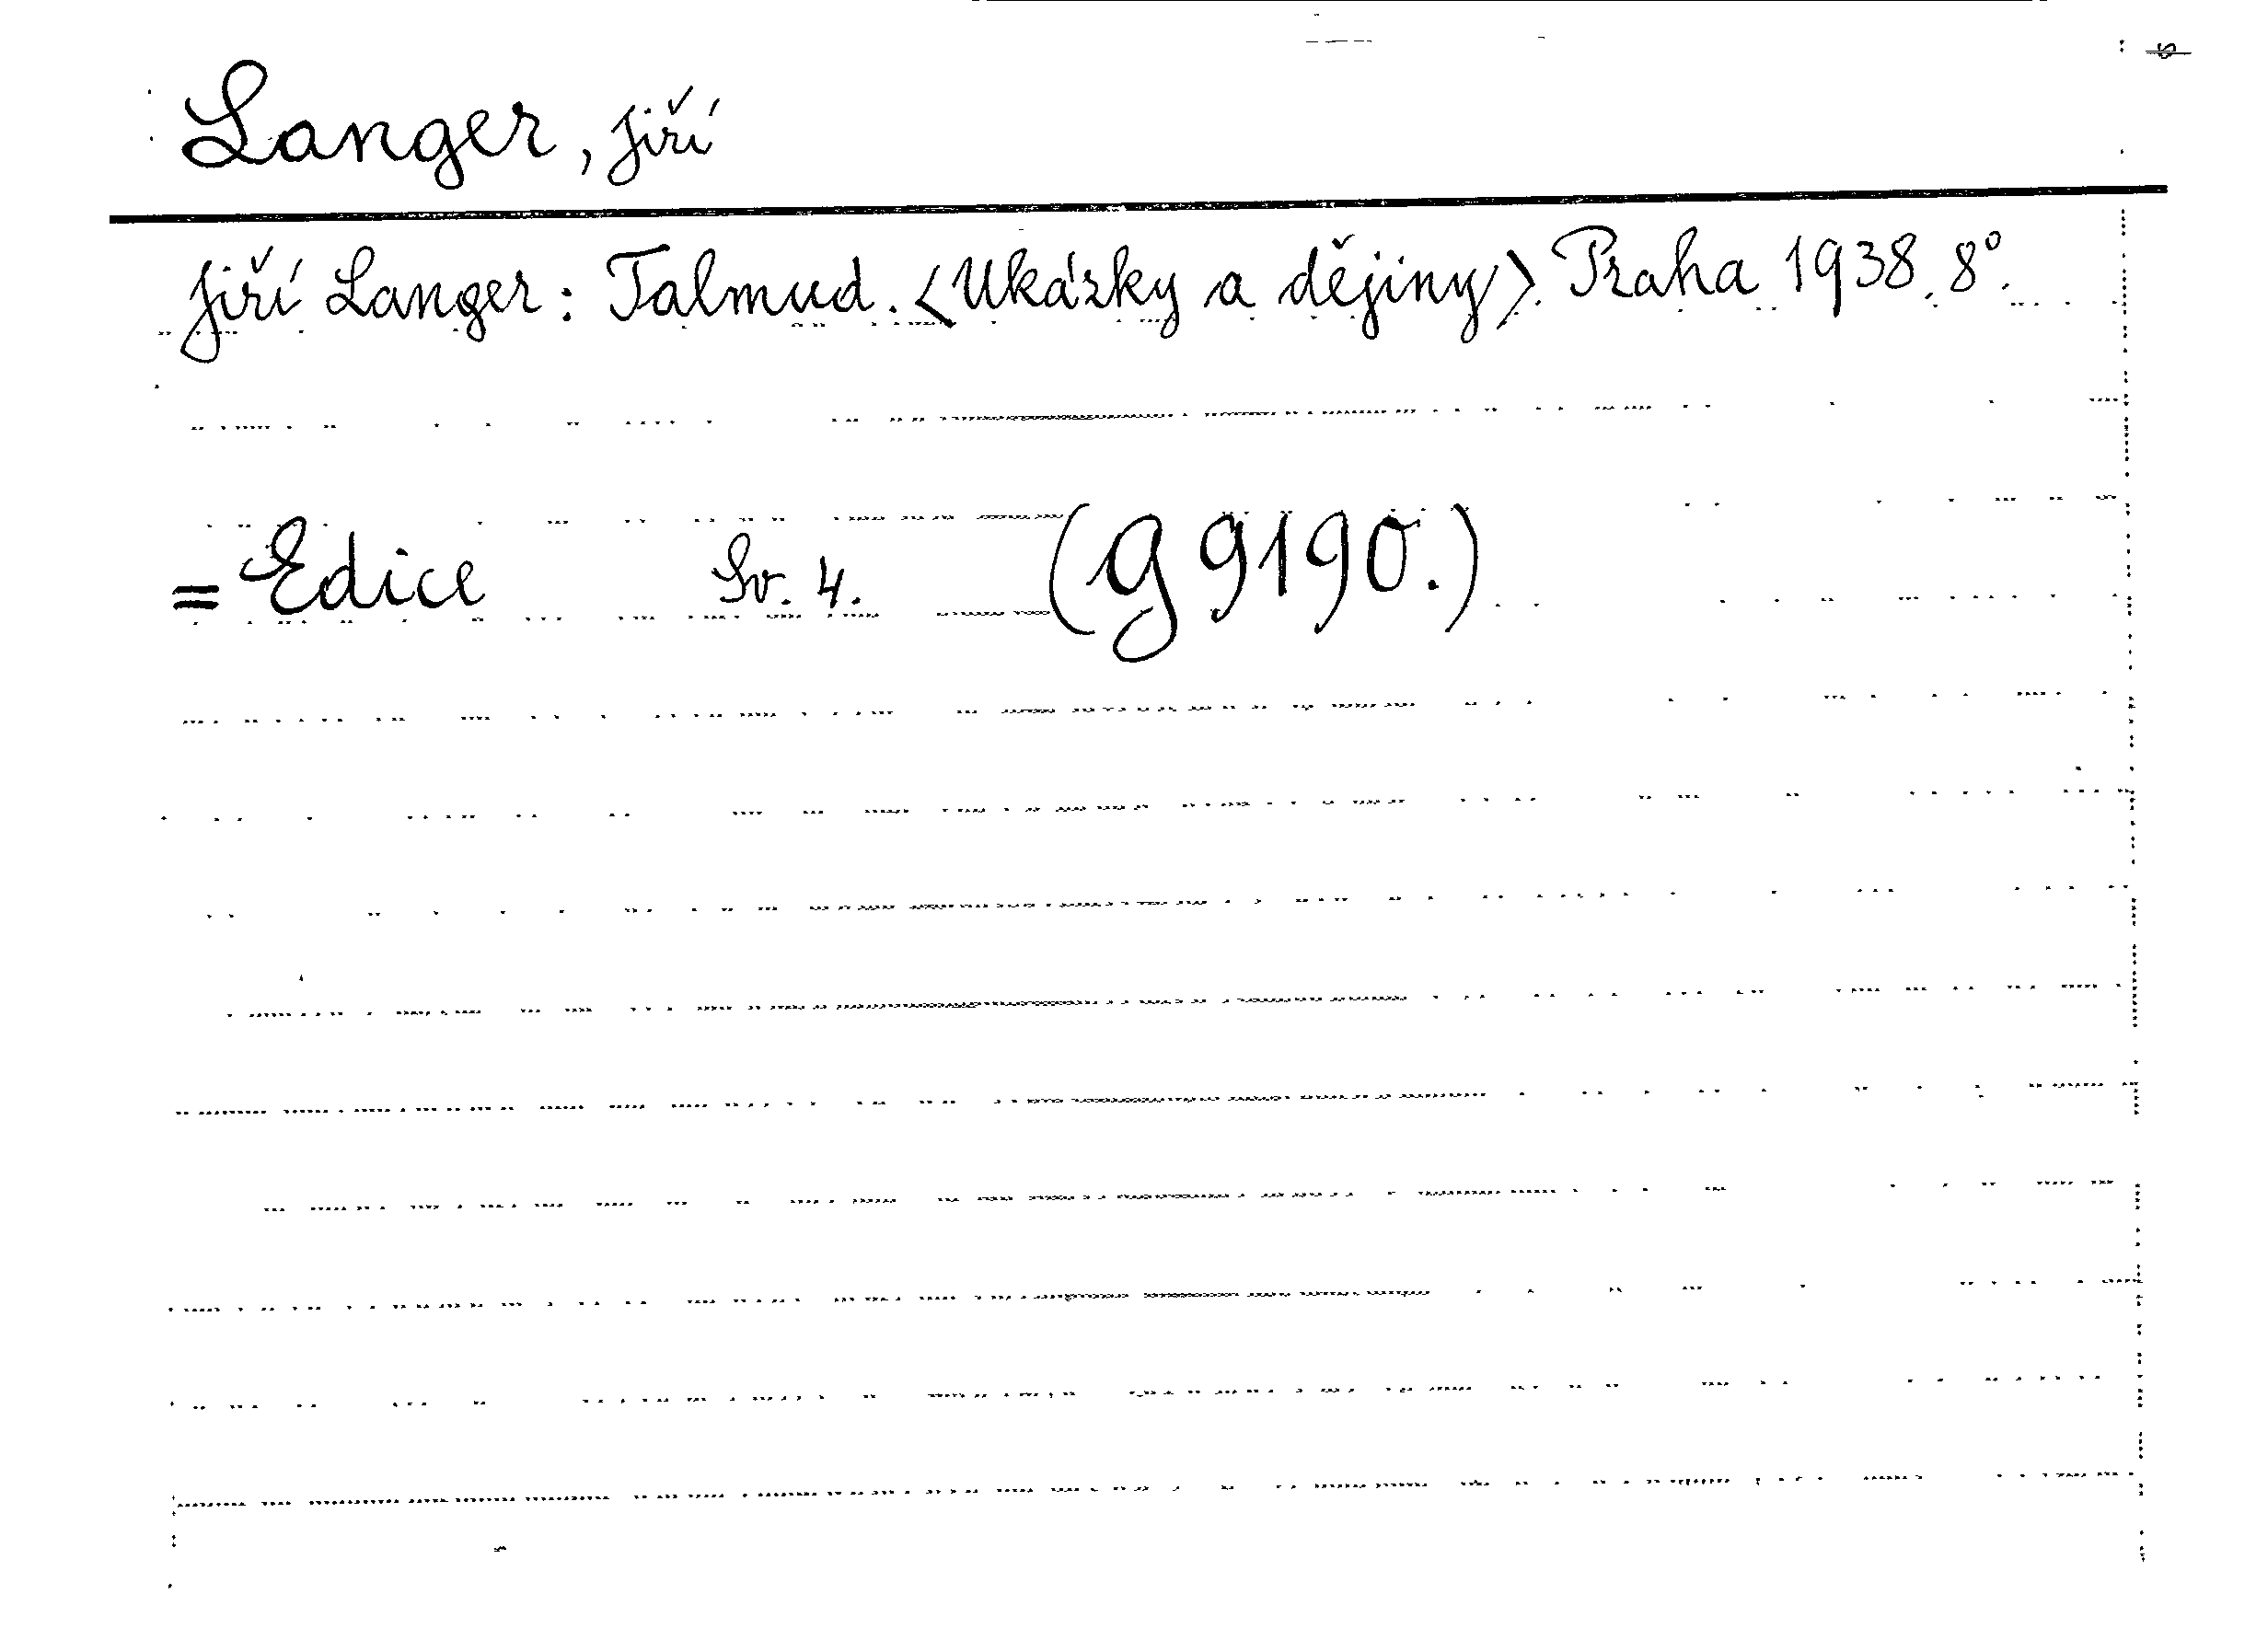 Langer, Jiří
Jiří Langer: Talmud. <Ukázky a dějiny>. Praha 1938. 8°.
= Edice Sv. 4. (g 9190.)